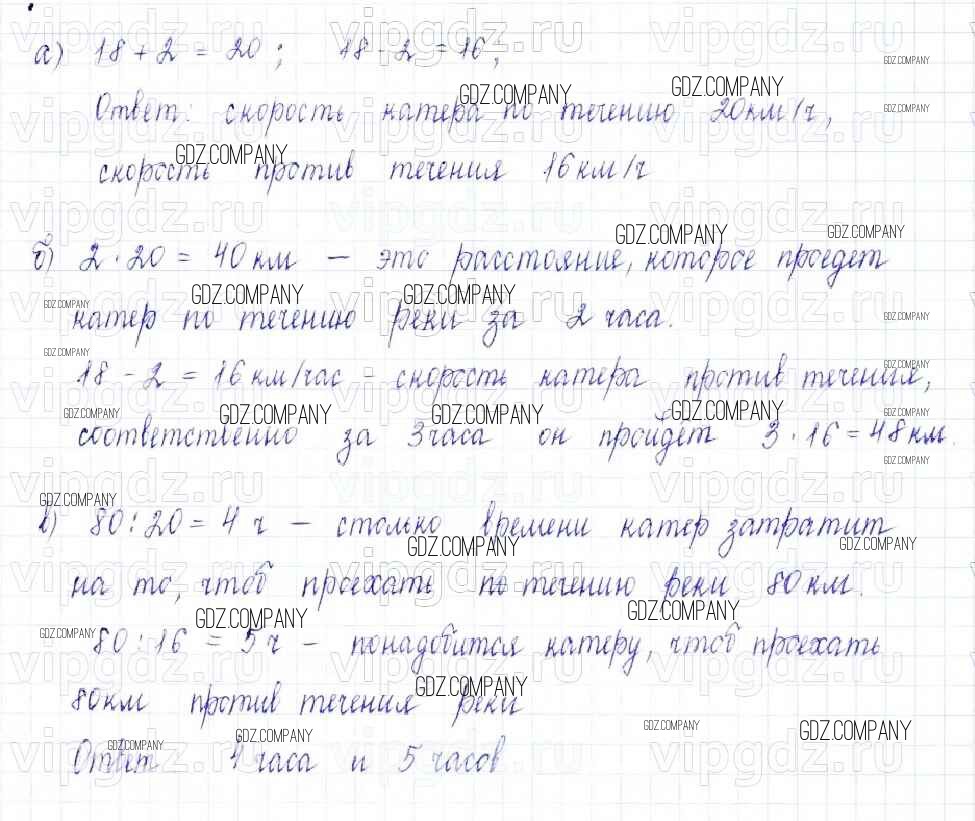 а) 18 + 2 = 20 ; 18 - 2 = 16 ;
Ответ: скорость катера по течению 20км/ч,
скорость против течения 16км/ч
б) 2 · 20 = 40 км — это расстояние, которое проедет
катер по течению реки за 2 часа.
18 - 2 = 16 км/час - скорость катера против течения,
соответственно за 3 часа он пройдёт 3 · 16 = 48 км.
в) 80 : 20 = 4 ч — столько времени катер затратит
на то, чтоб проехать по течению реки 80 км.
80 : 16 = 5 ч — понадобится катеру, чтоб проехать
80км против течения реки
Ответ 4 часа и 5 часов
vipgdz.ru
GDZ.COMPANY